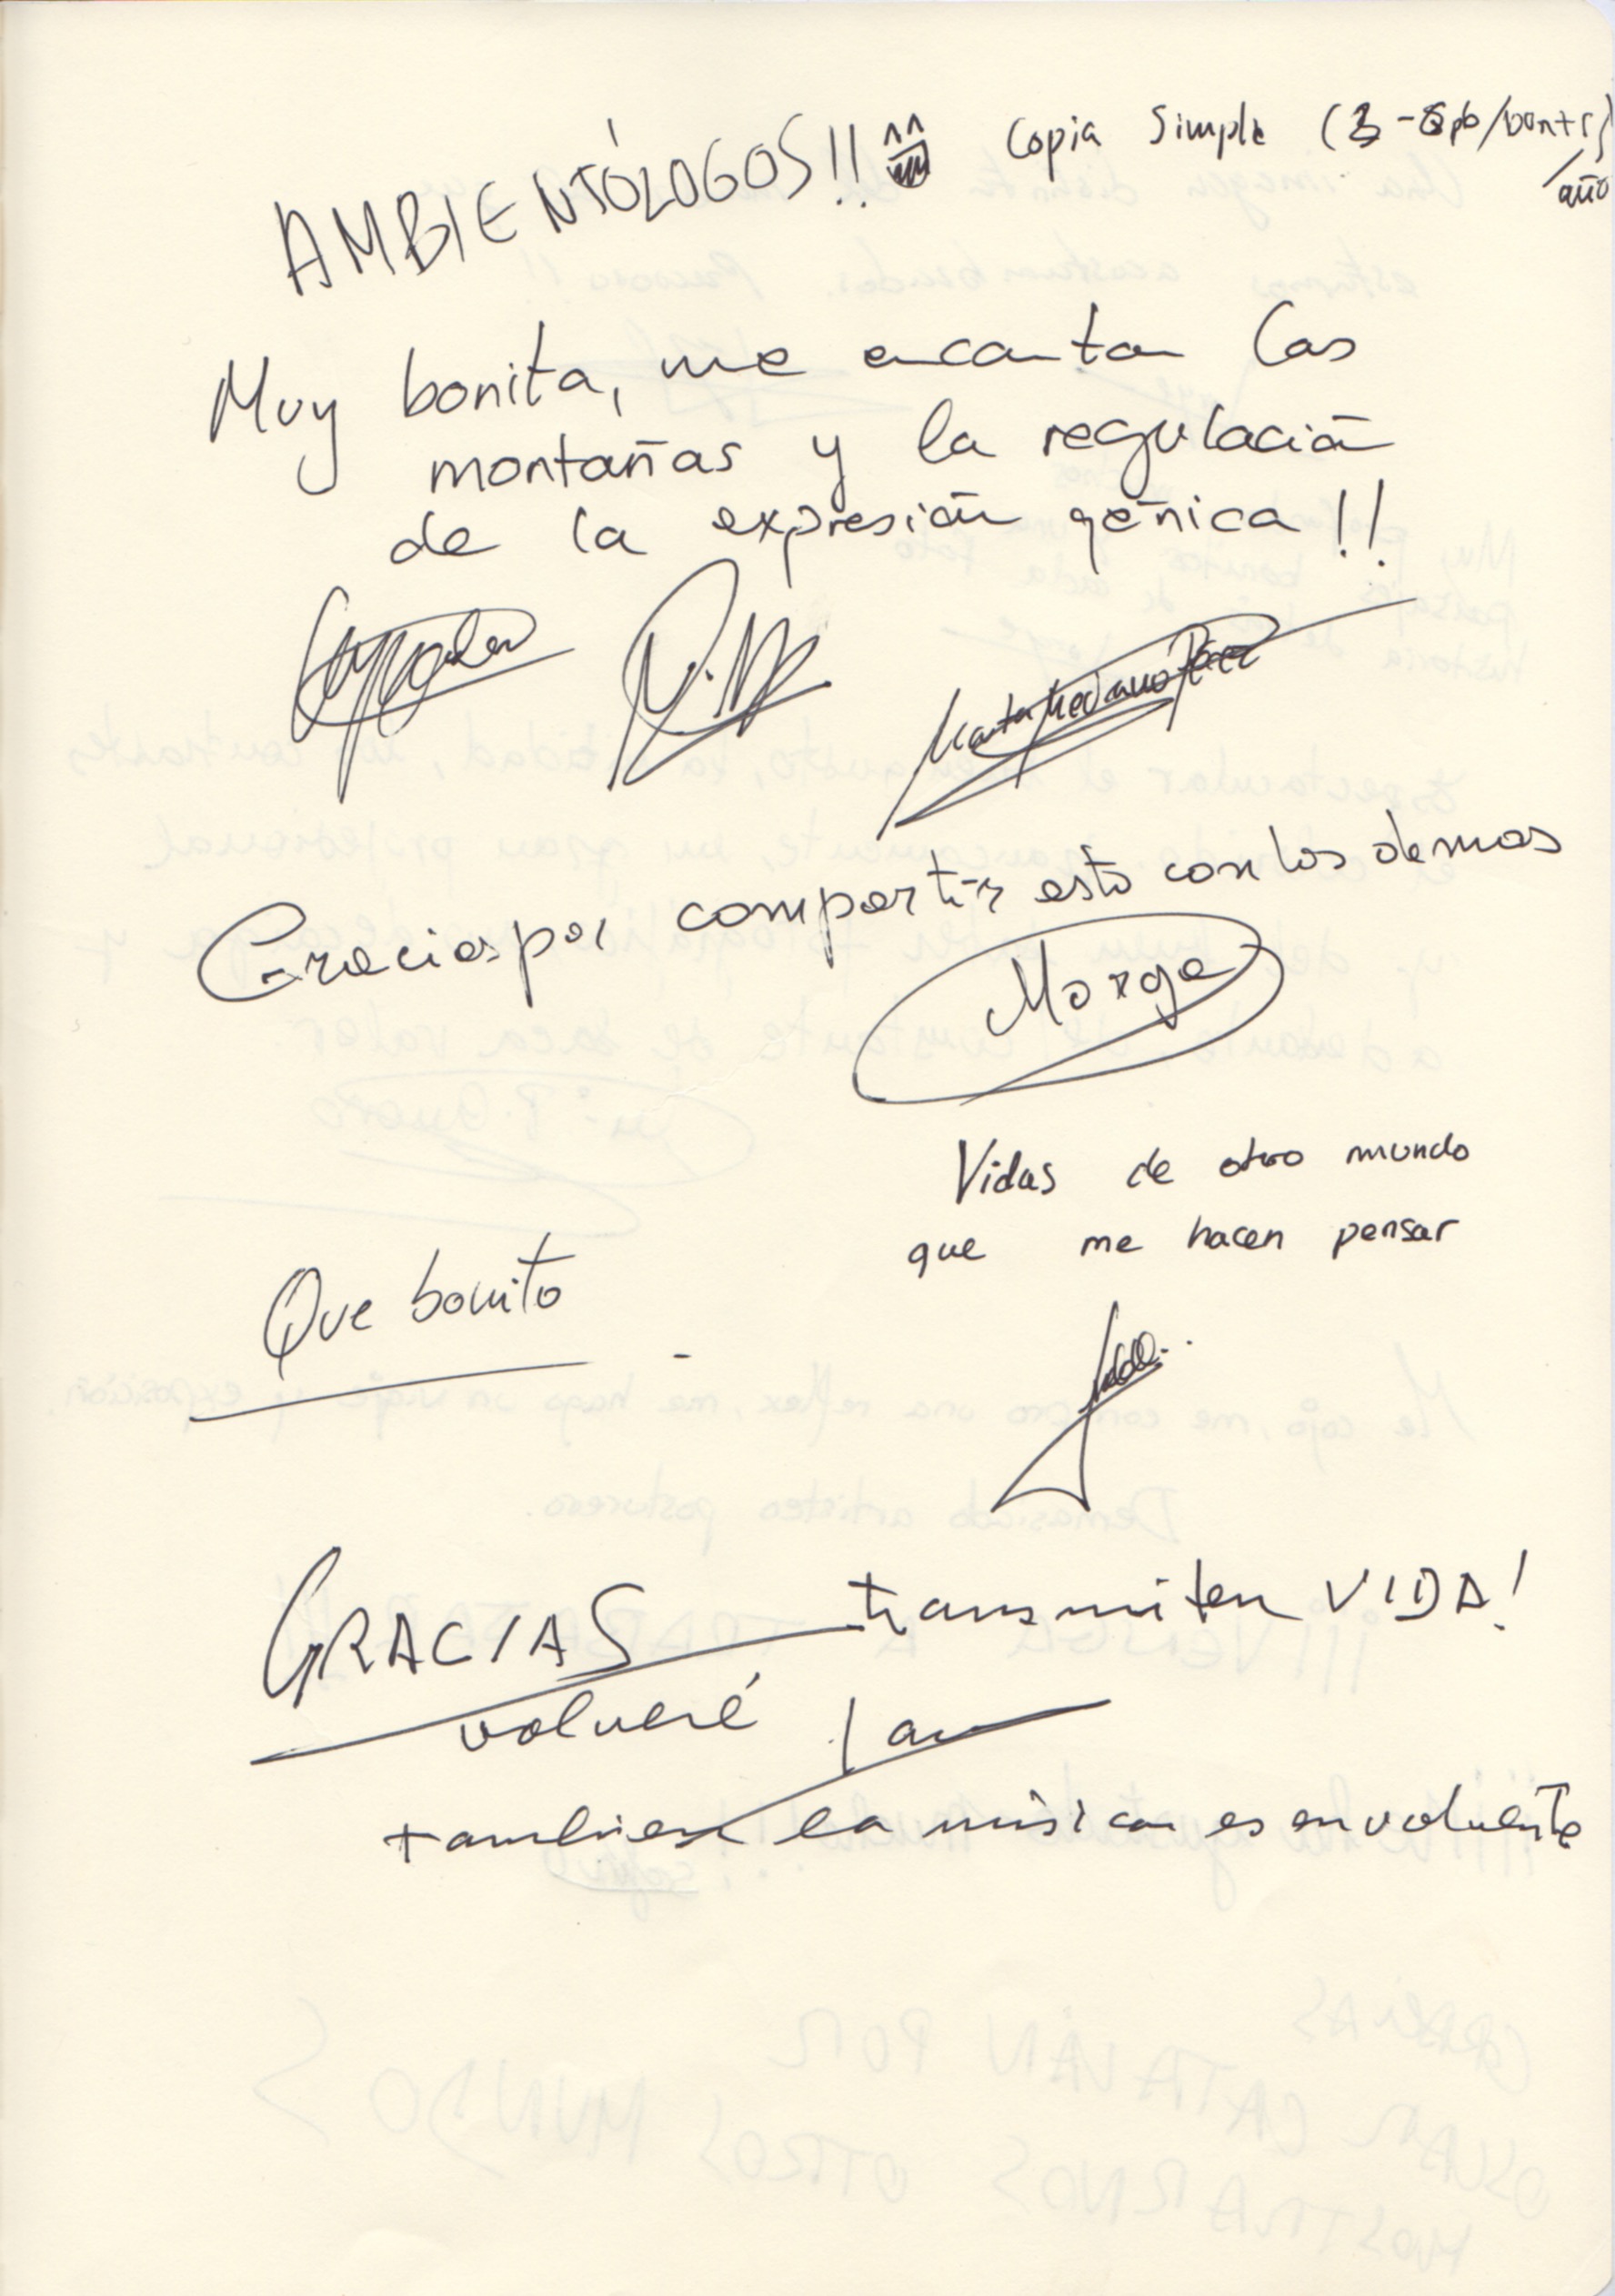 AMBIENTÓLOGOS!! Copia Simple
año
Muy bonita, me encantan las
montañas y la regulación
de la expresión génica!!
Gracias por compartir esto con los demas
Vidas de otro mundo
que me hacen pensar
Que bonito
GRACIAS transmiten VIDA!
volveré
tambien la música es envolvente